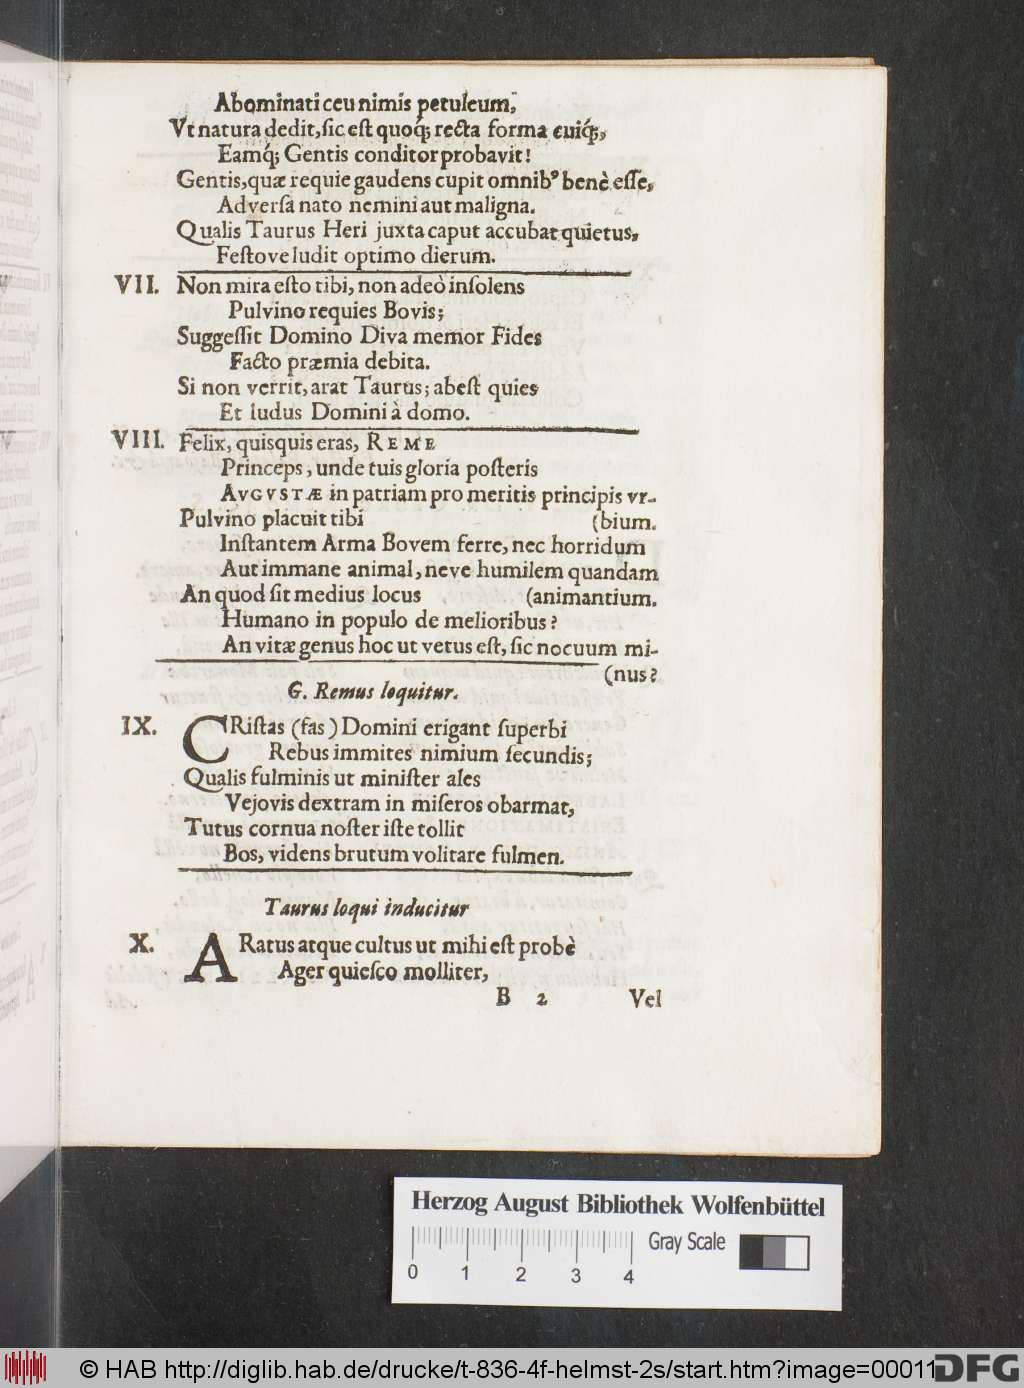 Abominati ceu nimis petulcum,
Vt natura dedit, sic est quoq́; recta forma cuiq́;,
Eamq́; Gentis conditor probavit!
Gentis, quæ requie gaudens cupit omnibꝰ benè esse,
Adversa nato nemini aut maligna.
Qualis Taurus Heri juxta caput accubat quietus,
Festove ludit optimo dierum.
VII. Non mira esto tibi, non adeò insolens
Pulvino requies Bovis;
Suggessit Domino Diva memor Fides
Facto præmia debita.
Si non verrit, arat Taurus; abest quies
Et ludus Domini à domo.
VIII. Felix, quisquis eras, REME
Princeps, unde tuis gloria posteris
AVGVSTÆ in patriam pro meritis principis vr-
Pulvino placuit tibi (bium.
Instantem Arma Bovem ferre, nec horridum
Aut immane animal, neve humilem quandam
An quod sit medius locus (animantium.
Humano in populo de melioribus?
An vitæ genus hoc ut vetus est, sic nocuum mi-
(nus?
G. Remus loquitur.
IX. CRistas (fas) Domini erigant superbi
Rebus immites nimium secundis;
Qualis fulminis ut minister ales
Vejovis dextram in miseros obarmat,
Tutus cornua noster iste tollit
Bos, videns brutum volitare fulmen.
Taurus loqui inducitur
X. ARatus atque cultus ut mihi est probè
Ager quiesco molliter,
B 2 Vel
Herzog August Bibliothek Wolfenbüttel
Gray Scale
0 1 2 3 4
© HAB http://diglib.hab.de/drucke/t-836-4f-helmst-2s/start.htm?image=00011
DFG